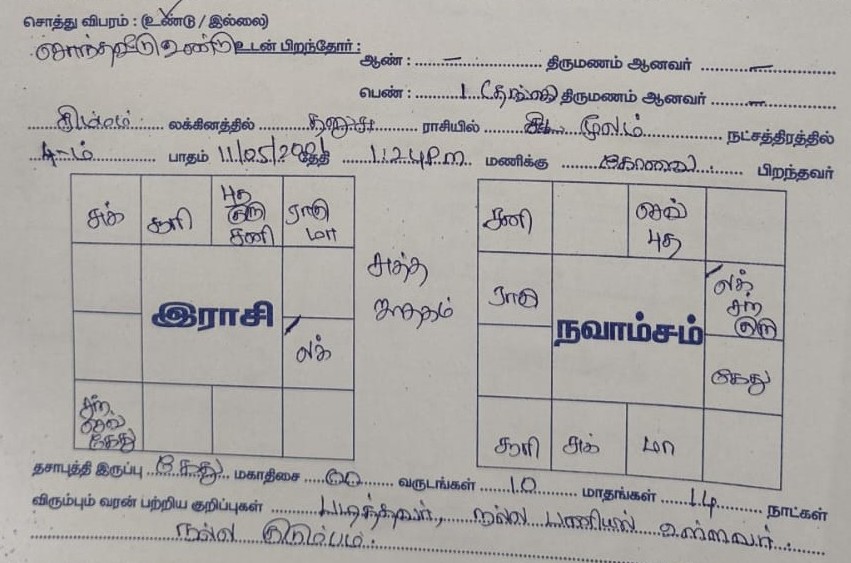 சொத்து விபரம் : (உண்டு / இல்லை)
சொந்தவீடு உண்டு உடன் பிறந்தோர் : ஆண் : – திருமணம் ஆனவர் –
பெண் : 1 (தங்கை) திருமணம் ஆனவர் –
சிம்மம் லக்கினத்தில் தனுசு ராசியில் மூலம் நட்சத்திரத்தில்
4-ம் பாதம் 11/05/2001 தேதி 1.24 P.m மணிக்கு கோவை பிறந்தவர்
சுக் சூரி புத குரு சனி ராகு மா
சனி செவ் புத
சுத்த ஜாதகம்
ராகு லக் சந் குரு
இராசி நவாம்சம்
லக் கேது
சந் செவ் கேது
சூரி சுக் மா
தசாபுத்தி இருப்பு கேது மகாதிசை 00 வருடங்கள் 10 மாதங்கள் 14 நாட்கள்
விரும்பும் வரன் பற்றிய குறிப்புகள் படித்தவர், நல்ல பணியில் உள்ளவர்.
நல்ல குடும்பம்.